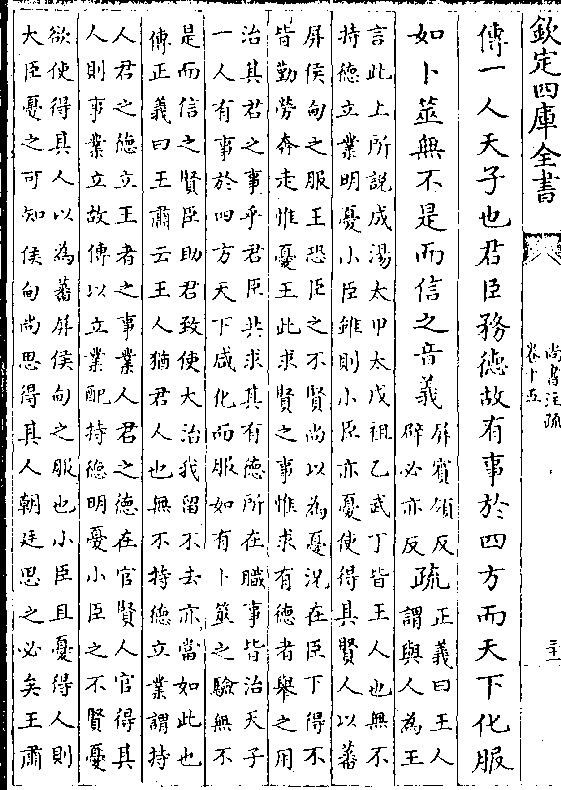 欽定四庫全書
尚書注疏
卷十五
傳一人天子也君臣務德故有事於四方而天下化服
如卜筮無不是而信之音義
屏賓領反
辟必亦反
疏
正義曰王人
謂與人為王
言此上所說成湯太甲太戊祖乙武丁皆王人也無不
持德立業明憂小臣雖則小臣亦憂使得其賢人以蕃
屏侯甸之服王恐臣之不賢尚以為憂況在臣下得不
皆勤勞奔走惟憂王此求賢之事惟求有德者舉之用
治其君之事乎君臣共求其有德所在職事皆治天子
一人有事於四方天下咸化而服如有卜筮之驗無不
是而信之賢臣助君致使大治我留不去亦當如此也
傳正義曰王肅云王人猶君人也無不持德立業謂持
人君之德立王者之事業人君之德在官賢人官得其
人則事業立故傳以立業配持德明憂小臣之不賢憂
欲使得其人以為蕃屏侯甸之服也小臣且憂得人則
大臣憂之可知侯甸尚思得其人朝廷思之必矣王肅